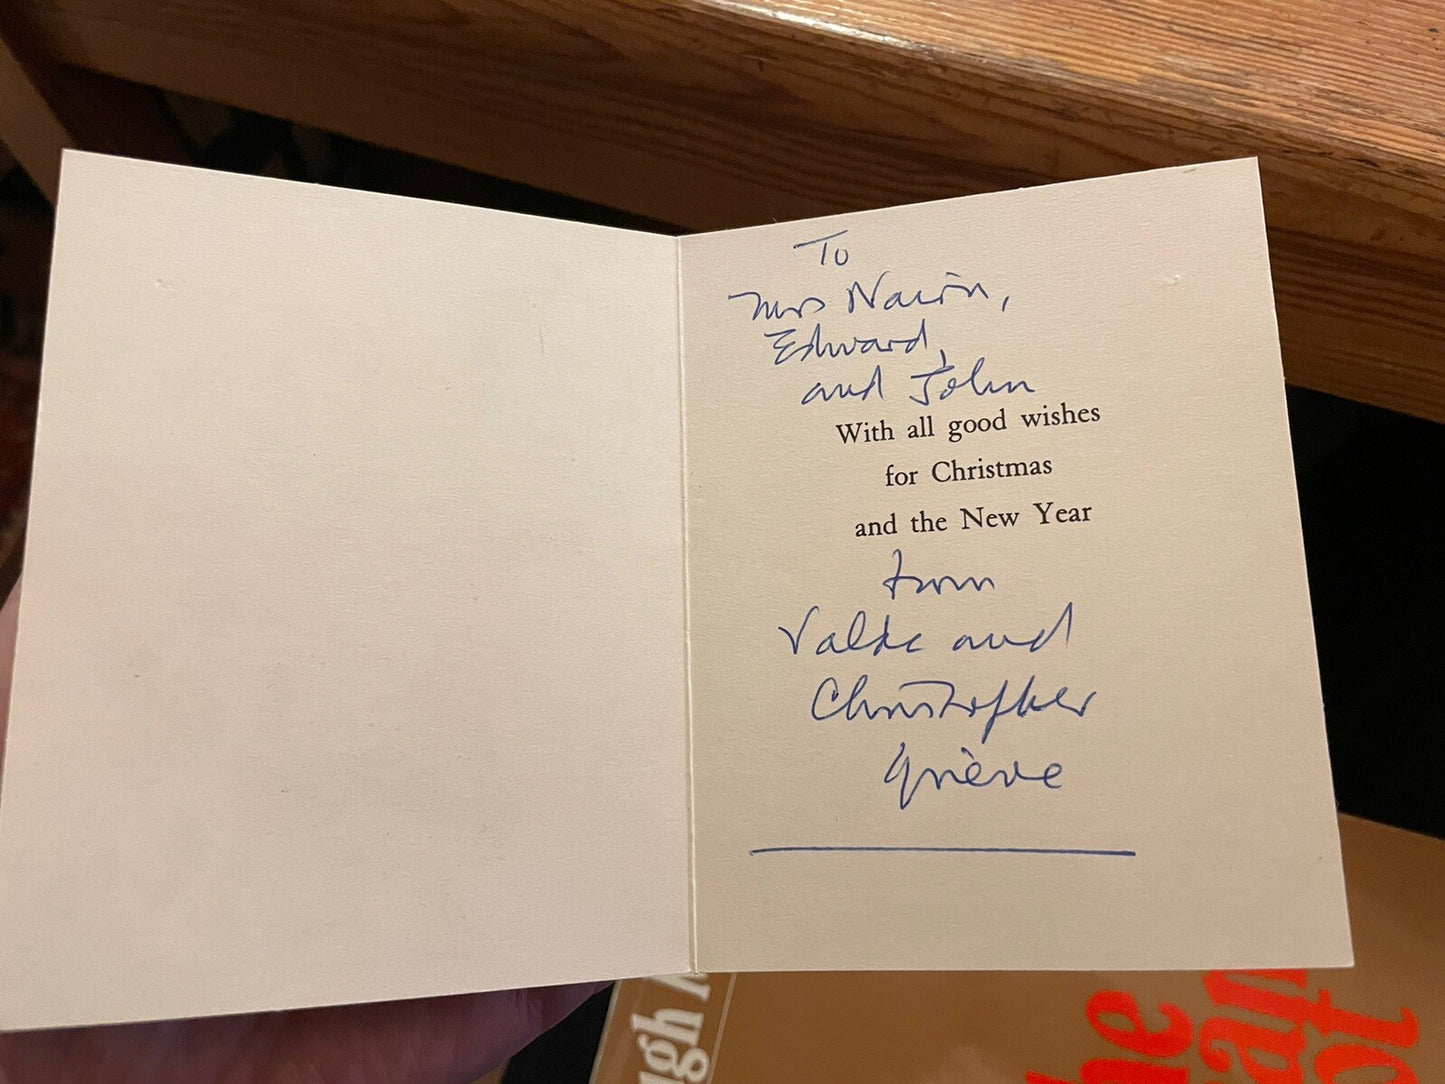 To
Mrs Nairn,
Edward,
and John
With all good wishes
for Christmas
and the New Year
from
Valda and
Christopher
Grieve
ugh
the